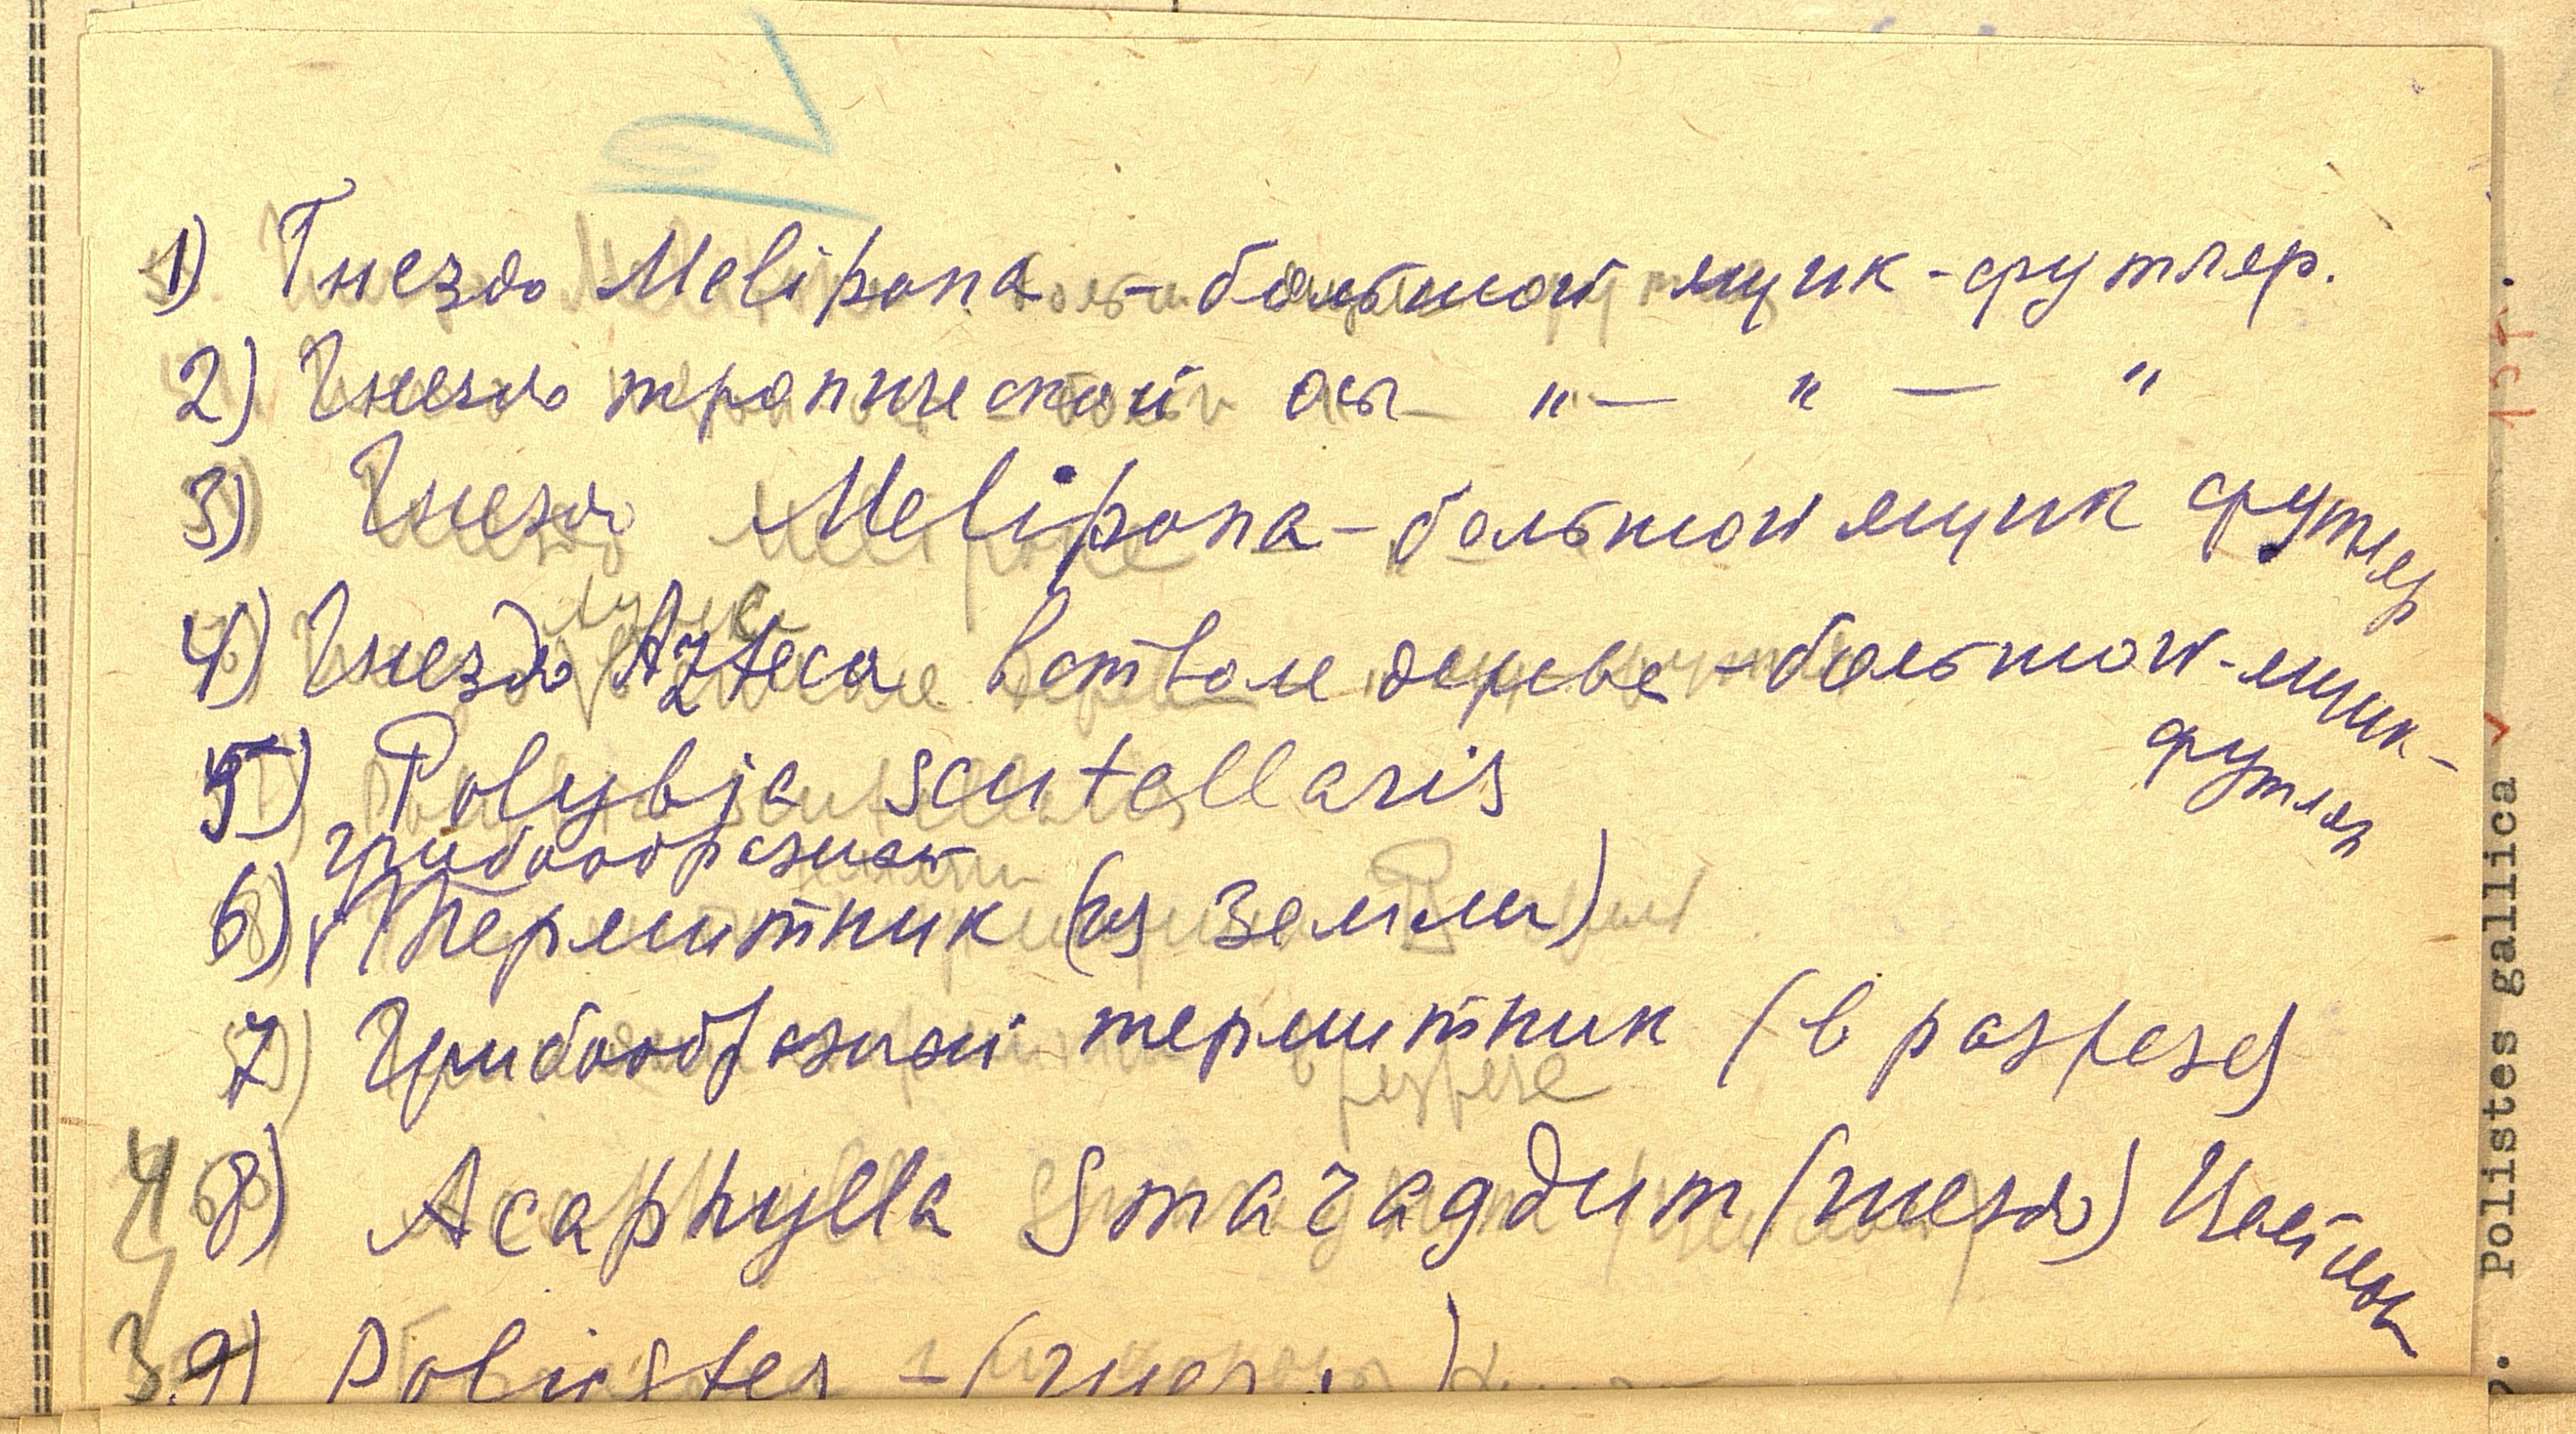 1) Гнездо Melipona - большой ящик-футляр.
2) Гнездо тропической осы "— " — "
3) Гнездо Melipona - большой ящик футляр
4) Гнездо Azteca в стволе дерева - большой-ящик-
футляр
5) Polybia scutellaris
грибообразный
6) Термитник (из земли)
7) Грибообразный термитник (в разрезе)
4 8) Acaphylla Smaragdum (гнездо) Цейлон
3 9) Poliustes - (гнездо)
Polistes gallica